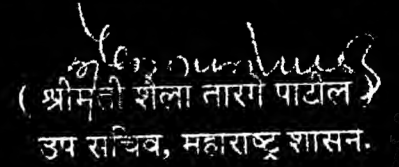 ( श्रीमती शैला तारगे पाटील )
उप सचिव, महाराष्ट्र शासन.